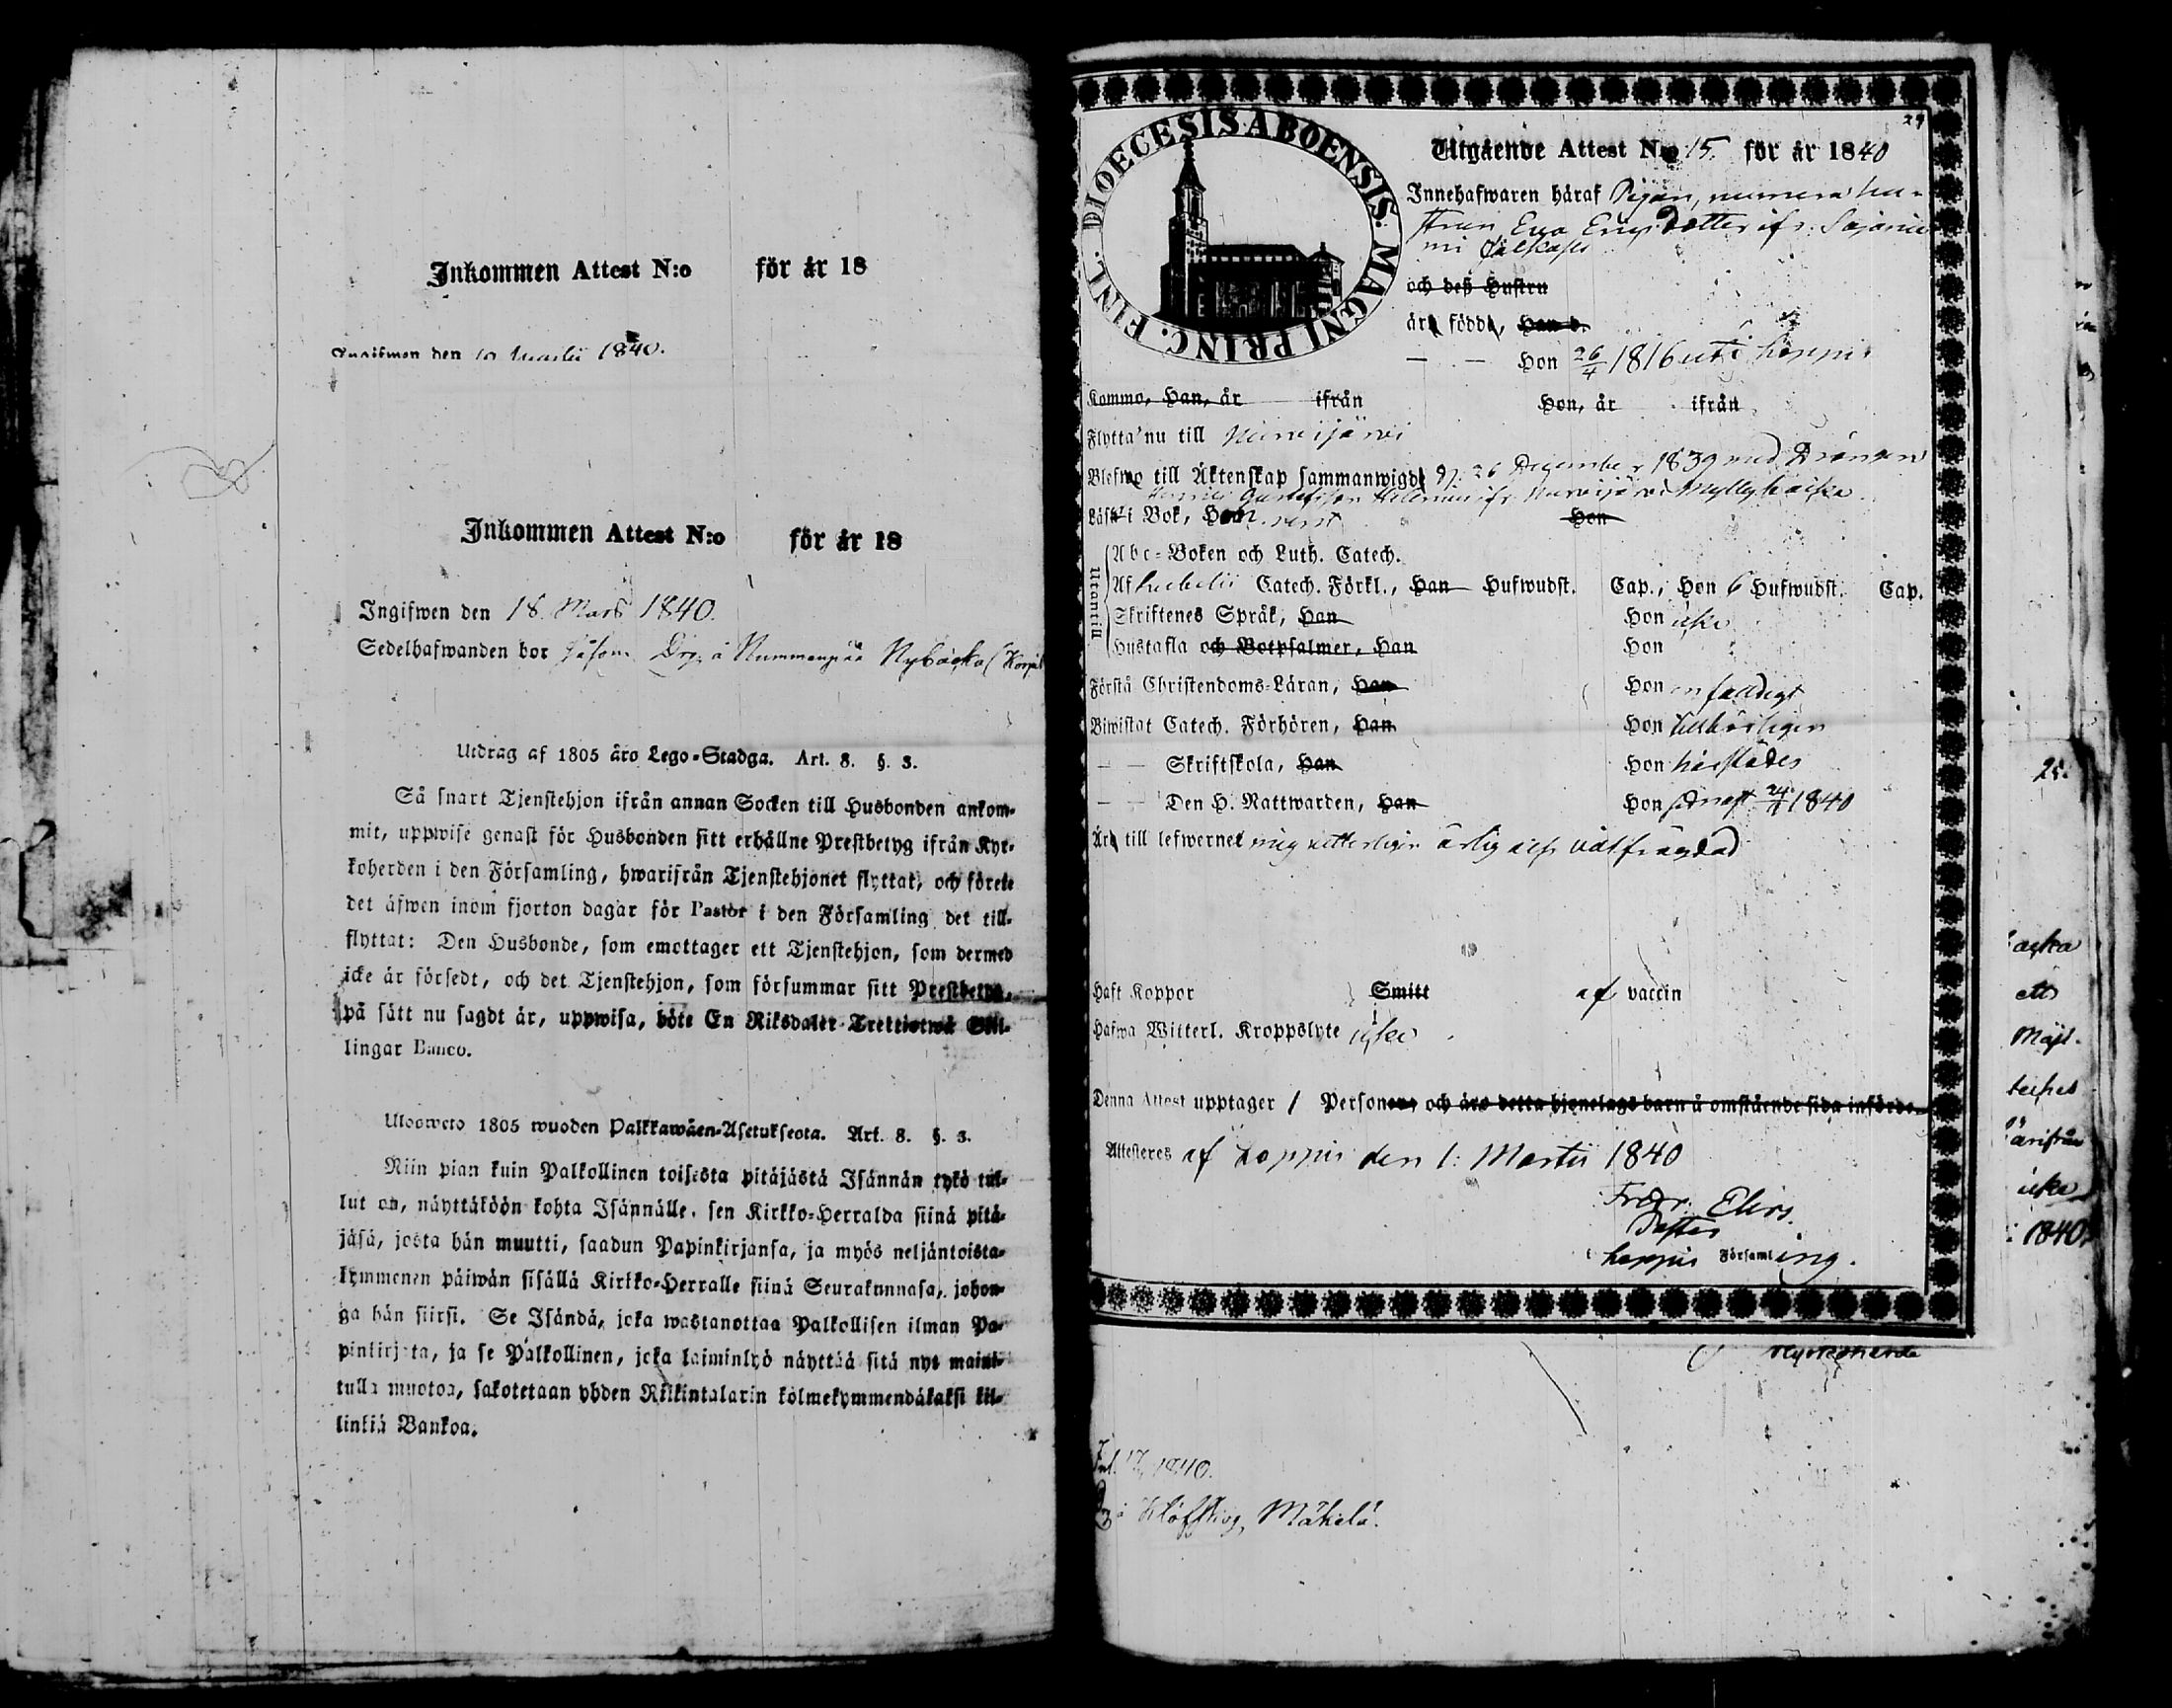 Inkommen Attest N:o för år 18
Ingifwen den 10 Martii 1840.
Inkommen Attest N:o för år 18
Ingifwen den 18 Mars 1840.
Sedelhafwanden bor såsom Drg. å Nummenpää Nybacka
Utdrag af 1805 åro Lego-Stadga. Art. 8. §. 3.
Så snart Tjenstehjon ifrån annan Socken till Husbonden ankom-
mit, uppwise genast för Husbonden sitt erhållne Prestbetyg ifrån Kyr-
koherden i den Församling, hwarifrån Tjenstehjonet flyttat, och förete
det äfwen inom fjorton dagar för Pastor i den Församling det till-
flyttat: Den Husbonde, som emottager ett Tjenstehjon, som dermed
icke är försedt, och det Tjenstehjon, som försummar sitt Prestbetyg,
på sätt nu sagdt är, uppwisa, böte En Riksdaler Trettiotwå Skil-
lingar Banco.
Ulosweto 1805 wuoden Palkkawäen-Asetuksesta. Art. 8. §. 3.
Niin pian kuin Palkollinen toisesta pitäjästä Isännän tykö tul-
lut on, näyttäköön kohta Isännälle, sen Kirkko-Herralda siinä pitä-
jäsä, josta hän muutti, saadun Papinkirjansa, ja myös neljäntoista-
kymmenen päiwän sisällä Kirkko-Herralle siinä Seurakunnasa, johon-
ga hän siirsi. Se Isändä, joka wastanottaa Palkollisen ilman Pa-
pinkirjata, ja se Palkollinen, joka laiminlyö näyttää sitä nyt maini-
tulla muotoa, sakotetaan yhden Riikintalarin kolmekymmendäkaksi kil-
linkiä Bankoa.
29
DIOECESIS ABOENSIS. MAGNI PRINC. FINL.
Utgående Attest N:o 15. för år 1840
Innehafwaren häraf Pigan, numera hu-
strun Eva Ericsdotter ifr. Sajanie
mi
och deß Hustru
äro födde, Han d.
— — Hon 26/4 1816 uti Loppis
Komme, Han, år ifrån Hon, år ifrån
Flytta nu till Nurmijärvi
Blefwo till Äktenskap sammanwigde d. 26 December 1839 med Drängen
Henric Gustafsson ifr. Nurmijärvi
Läser i Bok, Hon rent Hon
Utantill
Abc-Boken och Luth. Catech.
Af Svebelii Catech. Förkl., Han Hufwudst. Cap., Hon 6 Hufwudst. Cap.
Skriftenes Språk, Han Hon icke
Hustafla och Botpsalmer, Han Hon
Förstå Christendoms-Läran, Han Hon enfaldigt
Biwistat Catech. Förhören, Han Hon tillbörligen
— — Skriftskola, Han Hon härstädes
— — Den H. Nattwarden, Han Hon sednast 1840
Äro till lefwernet mig vetterligen ärlig och välfrägdad
Haft Koppor Smitt af vaccin
Hafwa Witterl. Kroppslyte icke
Denna Attest upptager 1 Personer, och äro detta hjonelags barn å omstående sida införde.
Attesteres af Loppis den 1: Martii 1840
Fredr. Elers
Pastor
i Loppis Församling.
Kyrkoherde
1840.
å Klöfskog, Mäkelä.
icke
: 1840.